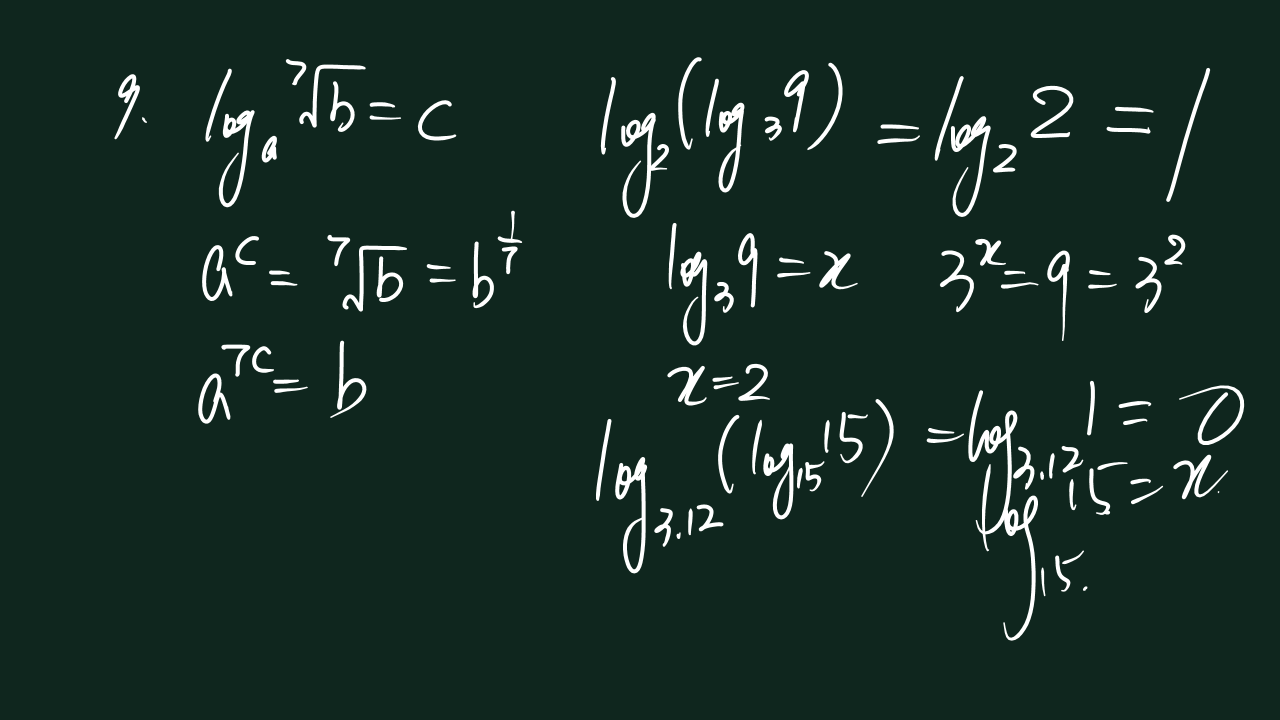 9. logₐ ⁷√b = c
aᶜ = ⁷√b = b^(1/7)
a^(7c) = b
log₂(log₃9) = log₂2 = 1
log₃9 = x 3ˣ = 9 = 3²
x = 2
log₃.₁₂(log₁₅15) = log₃.₁₂1 = 0
log₁₅.15 = x